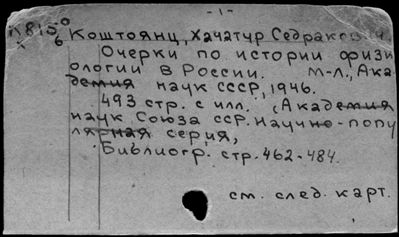 - 1 -
Коштоянц, Хачатур Седракович.
Очерки по истории физи
ологии в России. М-Л., Ака-
демия наук СССР, 1946.
493 стр. с илл. (Академия
наук Союза ССР. Научно-попу
лярная серия)
Библиогр. стр. 462-484.
см. след. карт.